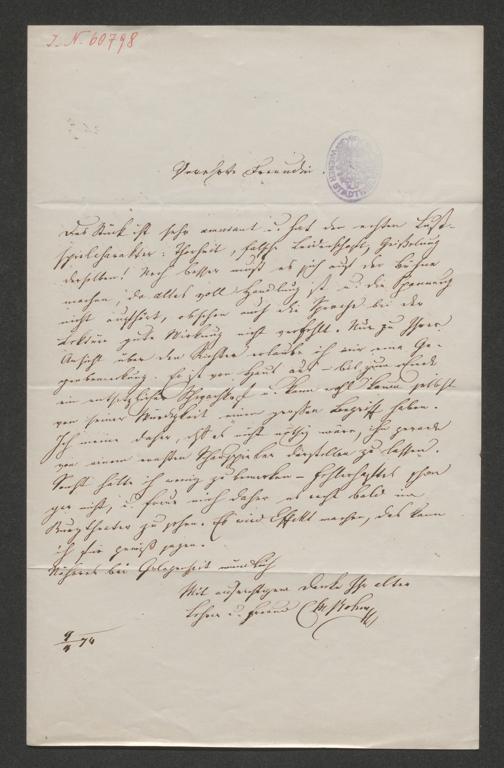 J. N. 60798
Verehrte Freundin.
WIENER STADT
Das Stück ist sehr amusant u. hat den echten Lust-
spielcharakter: Thorheit, falsche Leidenschaft, Geißelung
derselben! Noch besser muß es sich auf der Bühne
machen, da alles voll Handlung ist u. die Spannung
nicht aufhört, obschon auch die Sprache bei der
Lektüre gute Wirkung nicht verfehlt. Nur zu Ihrer
Ansicht über den Richter erlaube ich mir eine Ge-
genbemerkung. Er ist von Haus aus bis zum Ende
ein entsetzlicher Schwachkopf u. kann wohl kaum selbst
von seiner Würdigkeit einen großen Begriff haben.
Ich meine daher, daß es nicht nöthig wäre, ihn gerade
von einem ersten Schauspieler darstellen zu lassen.
Sonst hätte ich wenig zu bemerken – Fehlerhaftes schon
gar nicht, u. freue mich daher es recht bald im
Burgtheater zu sehen. Es wird Effekt machen, das kann
ich für gewiß sagen.
Näheres bei Gelegenheit mündlich
Mit aufrichtigem Danke Ihr alter
Lehrer u. Freund
74